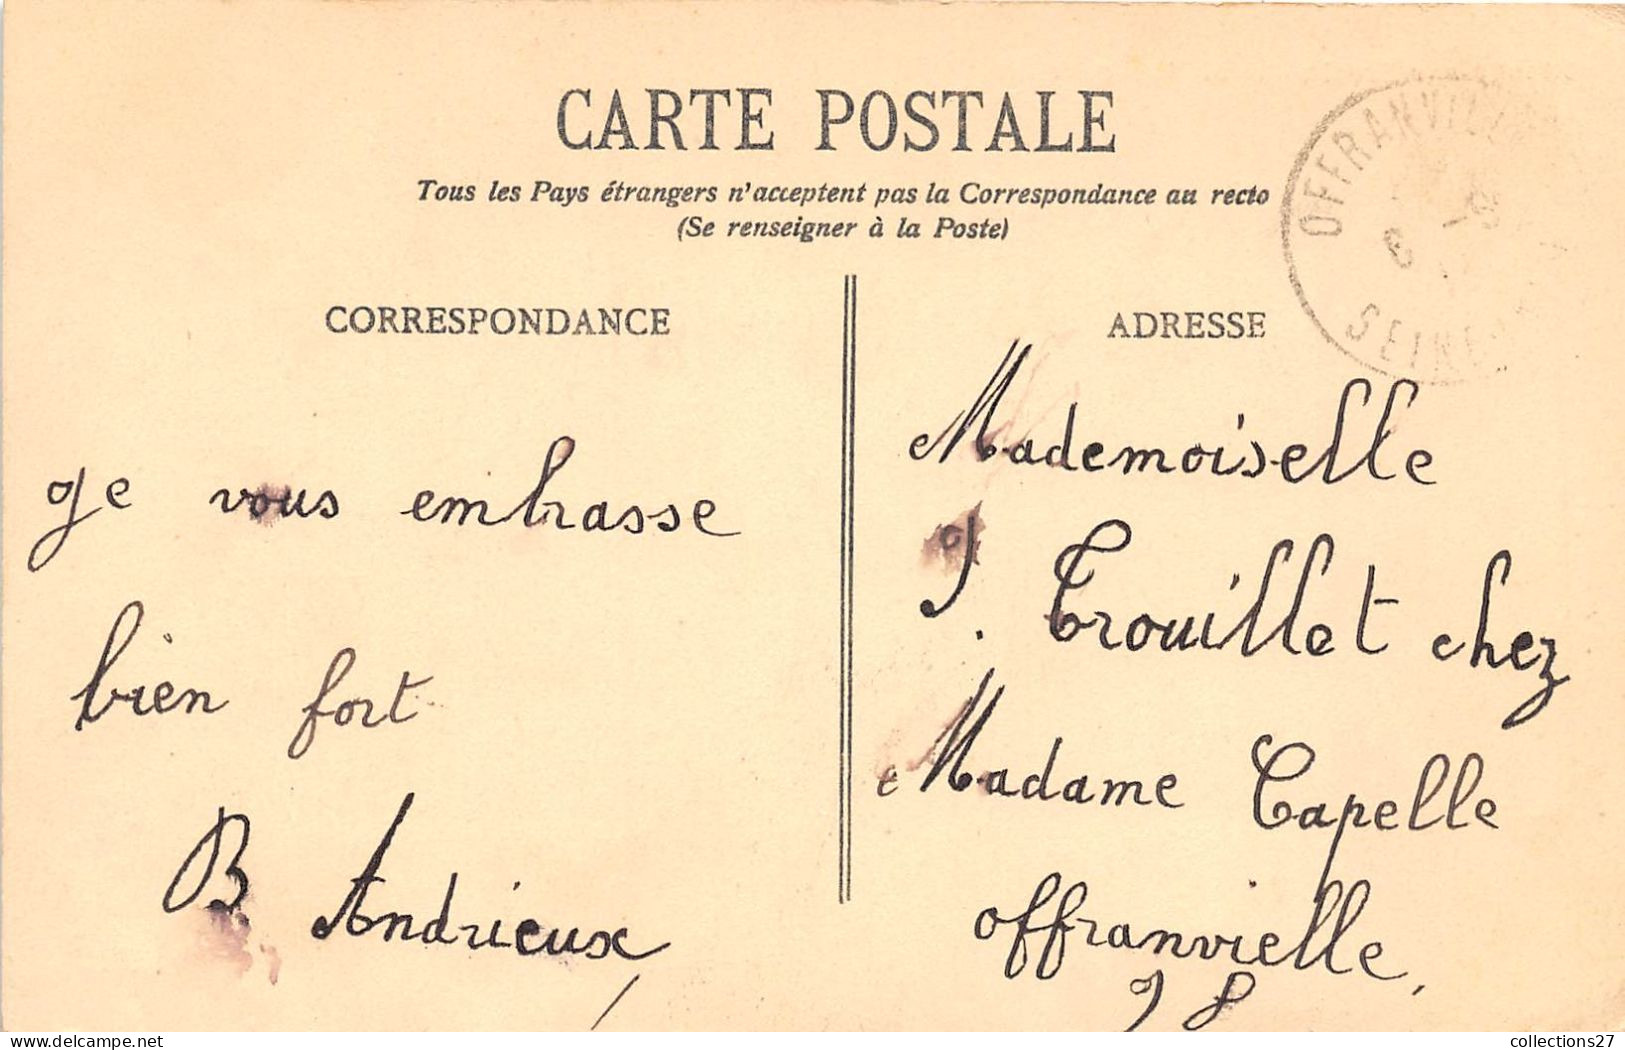 CARTE POSTALE
Tous les Pays étrangers n'acceptent pas la Correspondance au recto
(Se renseigner à la Poste)
OFFRANVILLE
6 - 9
SEINE
CORRESPONDANCE
Je vous embrasse
bien fort
B Andrieux
ADRESSE
Mademoiselle
J. Trouillet chez
Madame Capelle
offranvielle,
collections27